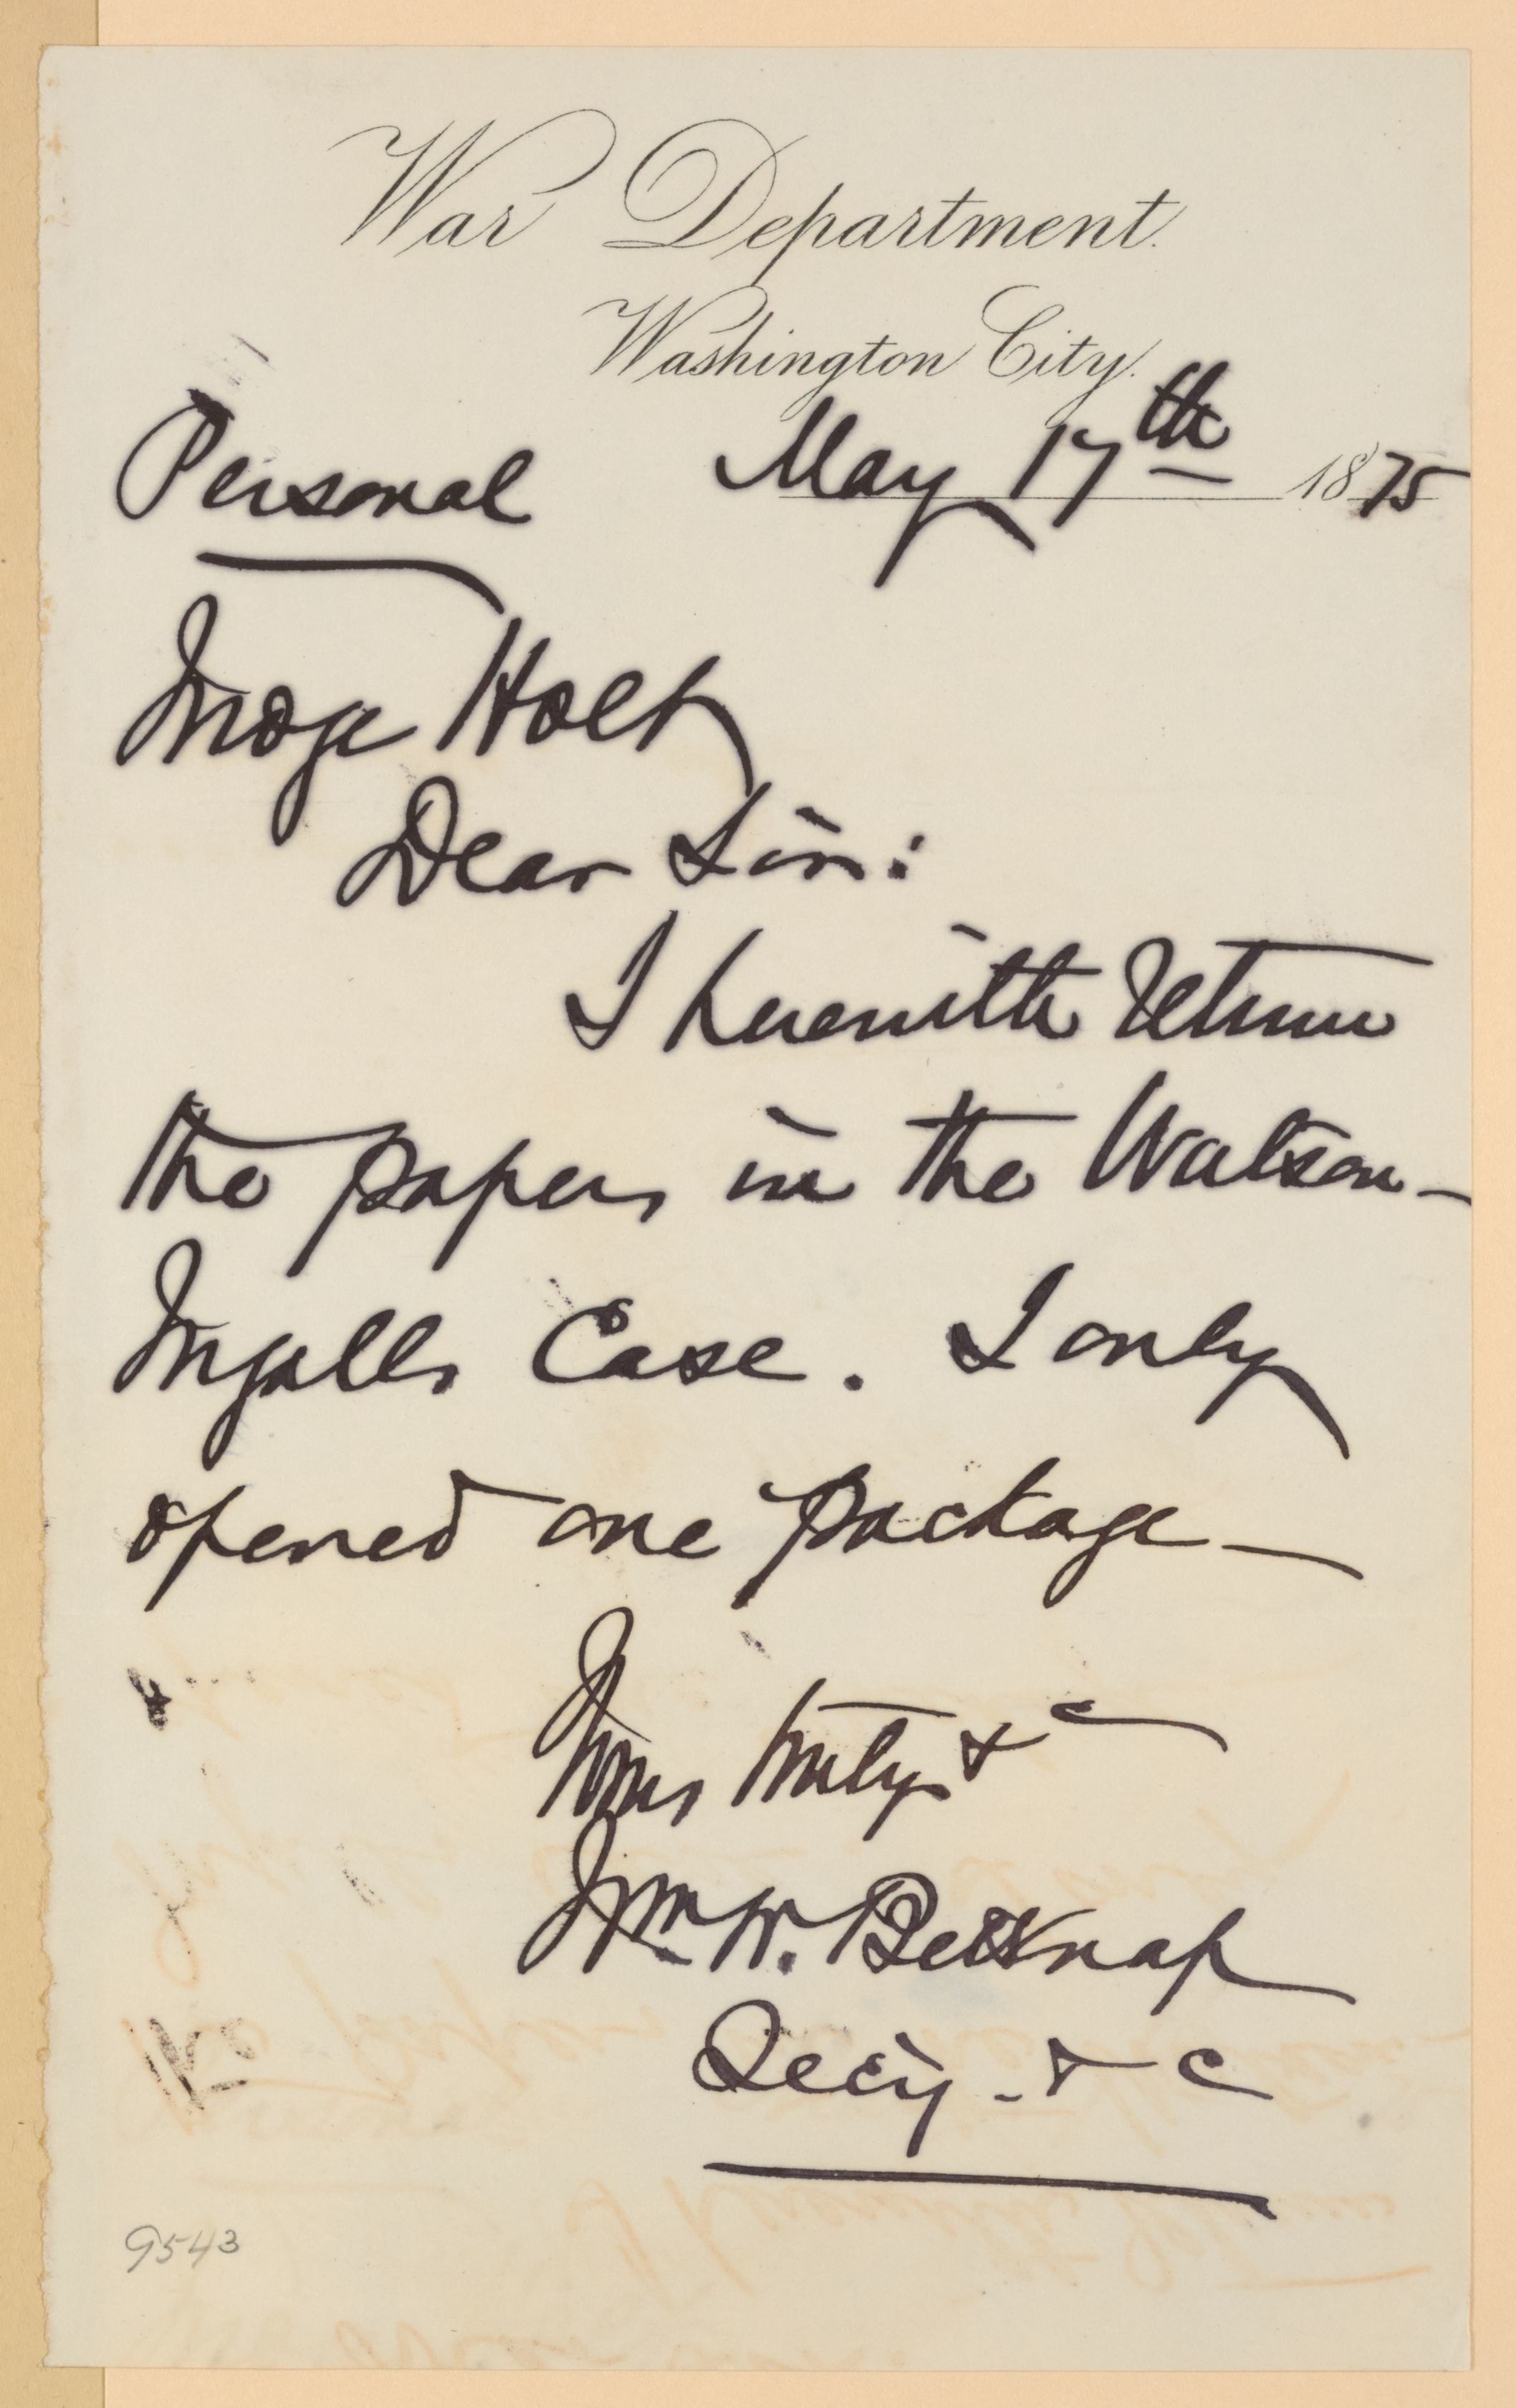 War Department.
Washington City.
Personal May 17th 1875
Judge Holt
Dear Sir:
I herewith return
the papers in the Watson-
Ingalls Case. I only
opened one package—
Yours truly &c
Wm W. Belknap
Secy. & C
9543